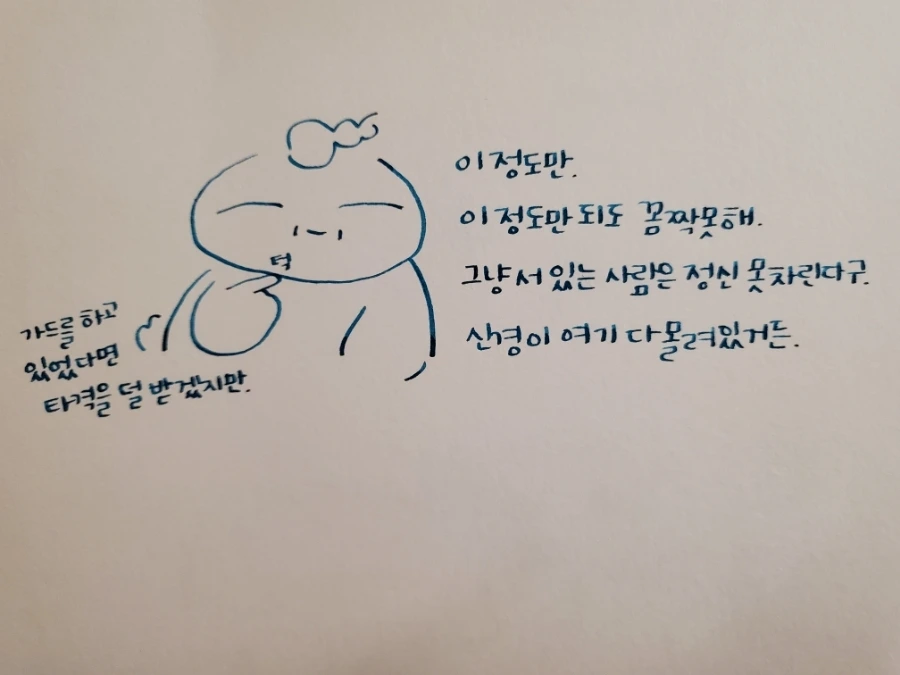 이정도만.
이정도만 되도 꼼짝못해.
그냥 서 있는 사람은 정신 못차린다구.
신경이 여기 다 몰려있거든.
턱
가드를 하고
있었다면
타격을 덜 받겠지만.